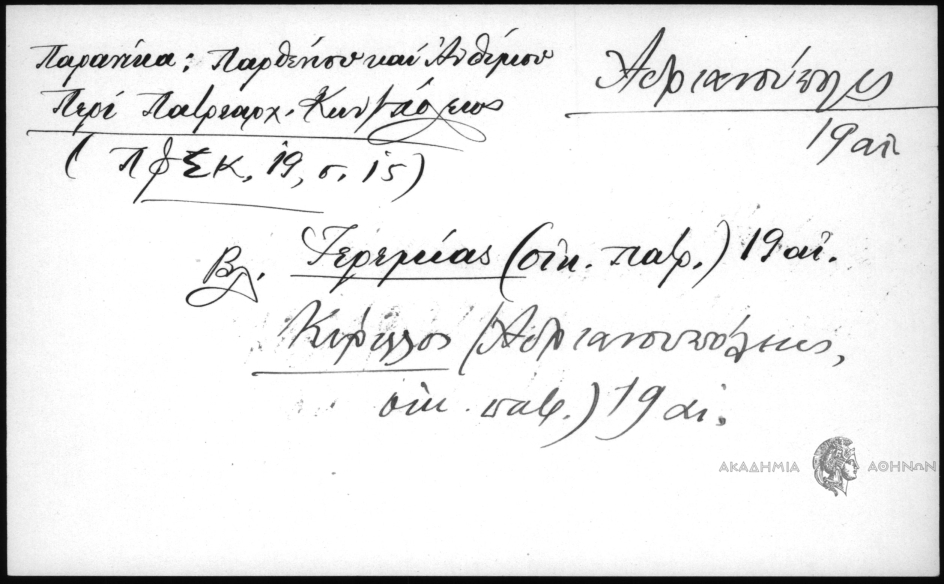 Παρανίκα: Παρθενίου καὶ Ἀνθίμου
Περὶ Πατριαρχ. Κων/πόλεως
(ΠΦΣΚ, 19, σ. 15)
Ἀδριανούπολις
19 αἰ
Βλ. Ἱερεμίας (οἰκ. πατρ.) 19 αἰ.
Κύριλλος (Ἀδριανουπόλεως,
οἰκ. πατρ.) 19 αἰ.
ΑΚΑΔΗΜΙΑ ΑΘΗΝΩΝ